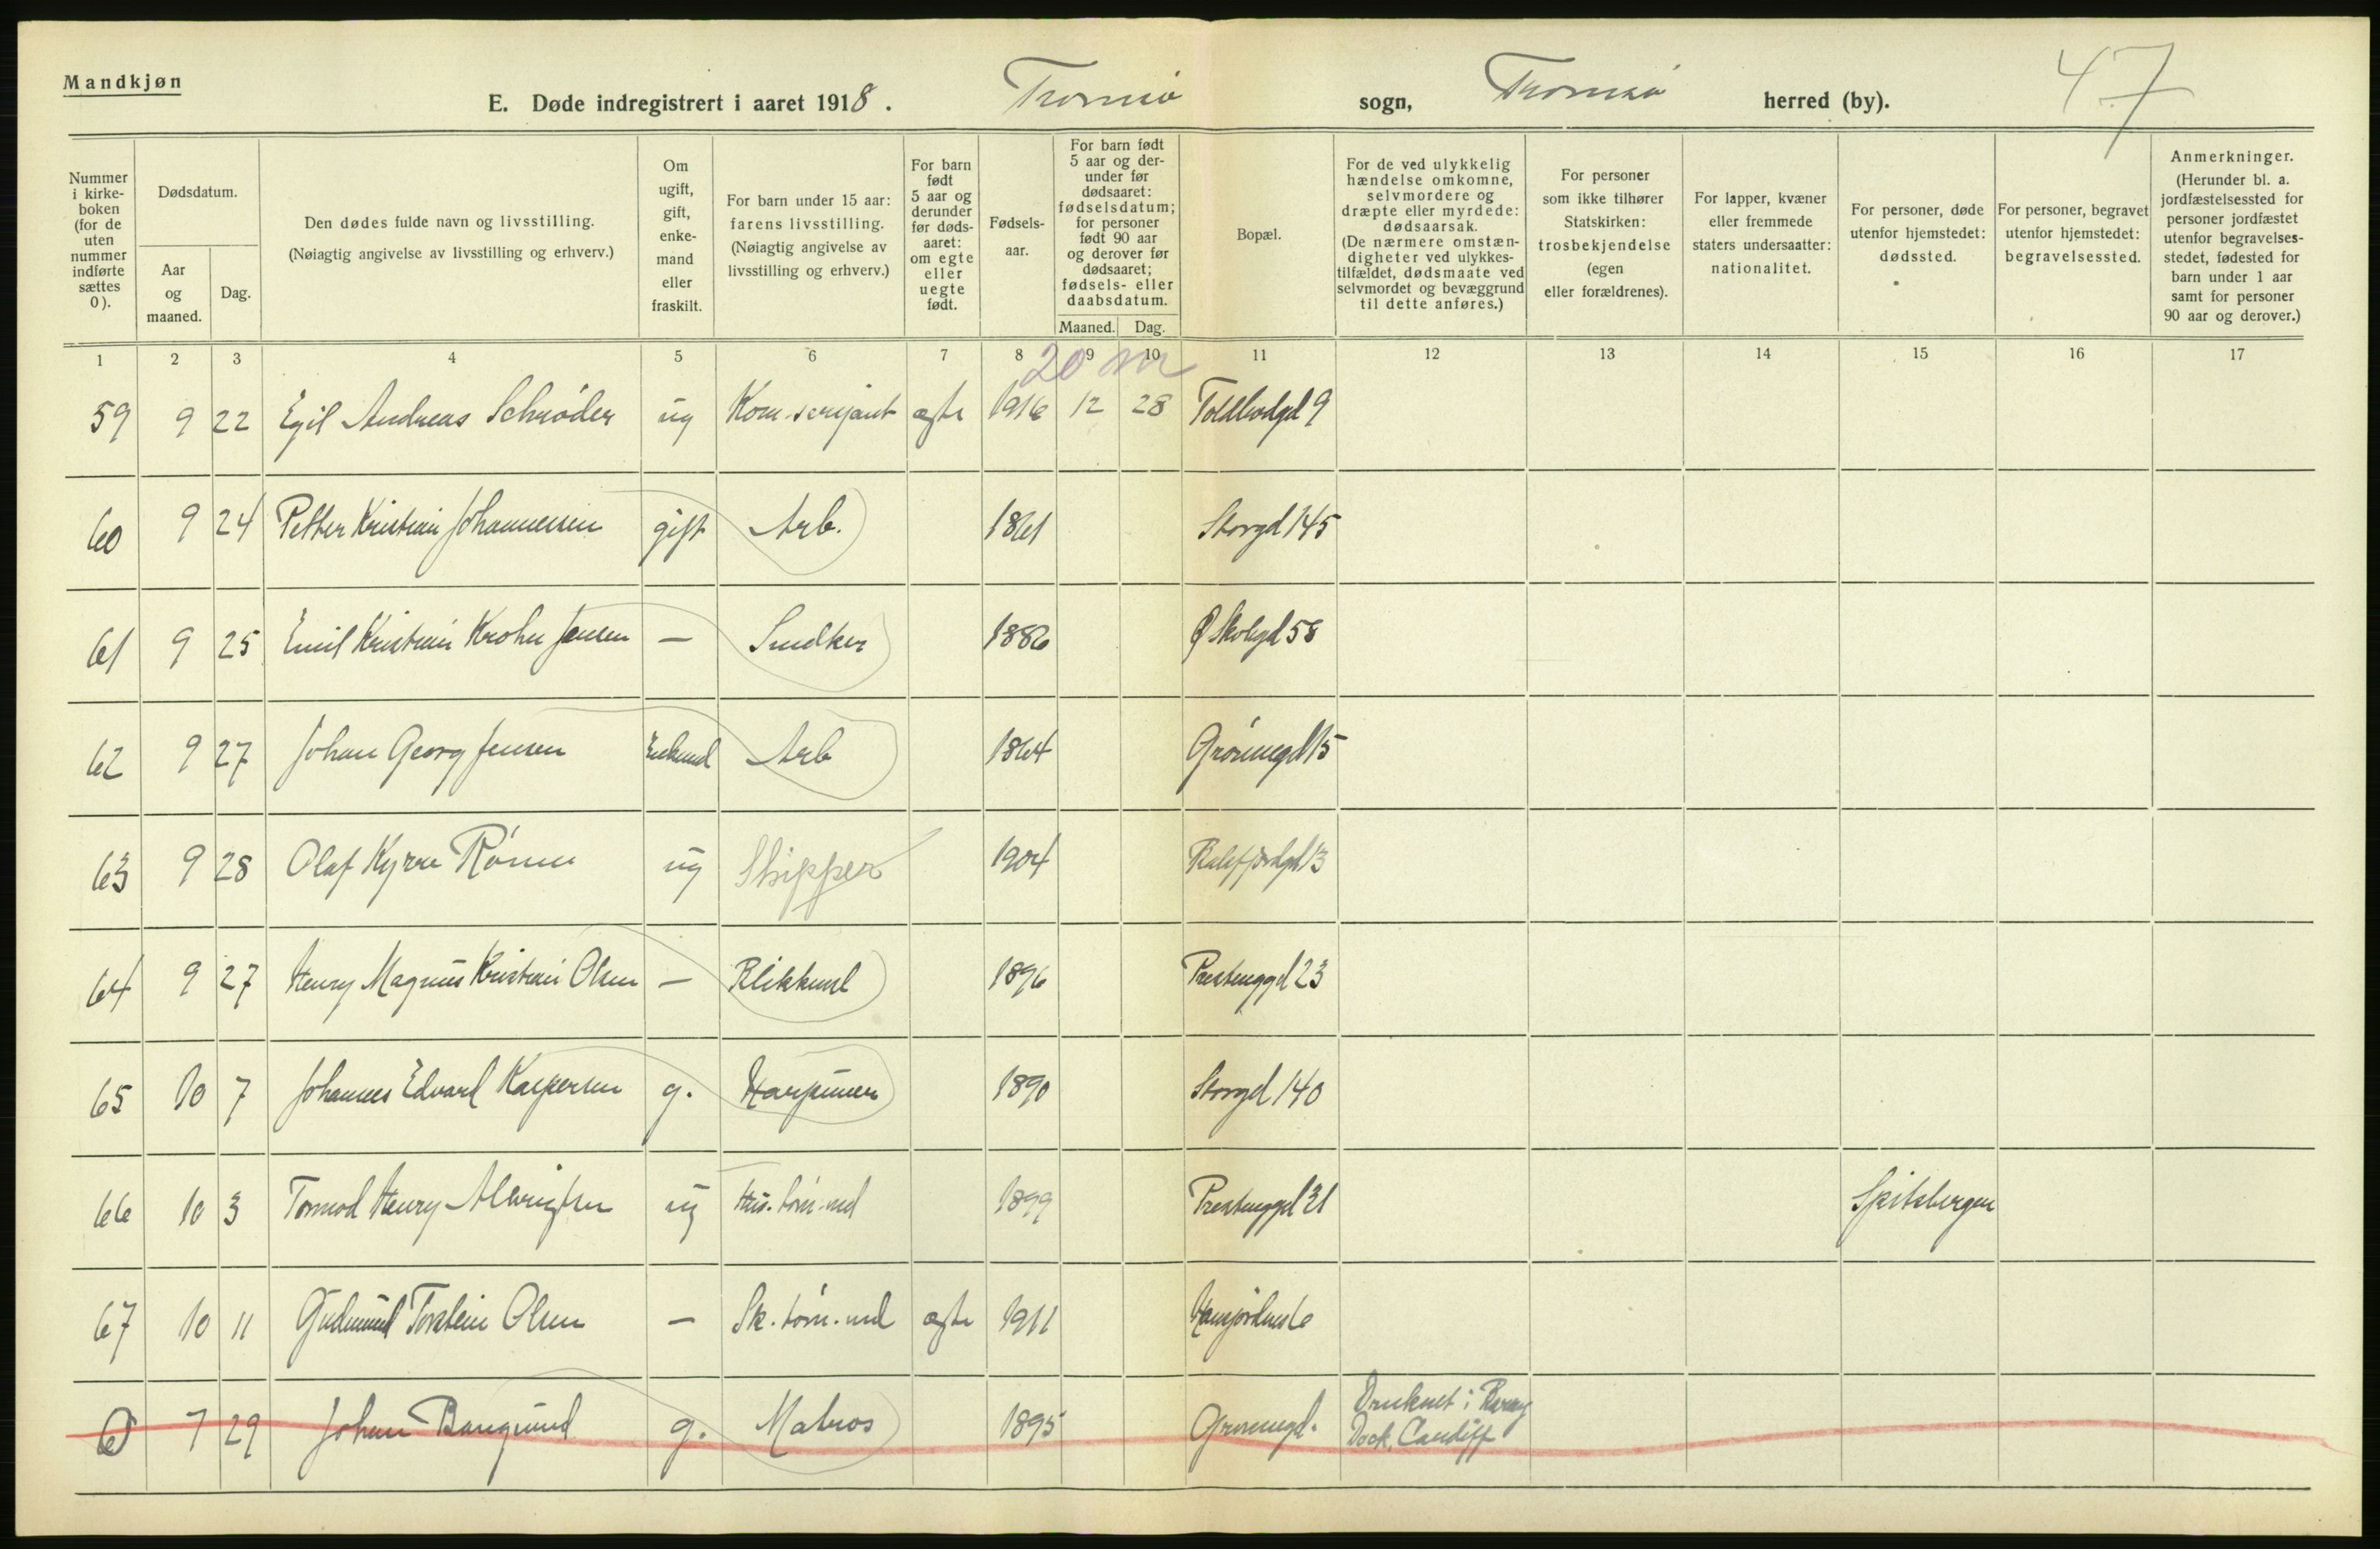 Mandkjøn
E. Døde indregistrert i aaret 1918. Tromsø sogn, Tromsø herred (by). 47
Nummer i kirke- boken (for de uten nummer indførte sættes 0).
Dødsdatum.
Aar og maaned.
Dag.
Den dødes fulde navn og livsstilling.
(Nøiagtig angivelse av livsstilling og erhverv.)
Om ugift, gift, enke- mand eller fraskilt.
For barn under 15 aar: farens livsstilling. (Nøiagtig angivelse av livsstilling og erhverv.)
For barn født 5 aar og derunder før døds- aaret: om egte eller uegte født.
Fødsels- aar.
For barn født 5 aar og der- under før dødsaaret: fødselsdatum; for personer født 90 aar og derover før dødsaaret; fødsels- eller daabsdatum.
Maaned. Dag.
Bopæl.
For de ved ulykkelig hændelse omkomne, selvmordere og dræpte eller myrdede: dødsaarsak. (De nærmere omstæn- digheter ved ulykkes- tilfældet, dødsmaate ved selvmordet og bevæggrund til dette anføres.)
For personer som ikke tilhører Statskirken: trosbekjendelse (egen eller forældrenes).
For lapper, kvæner eller fremmede staters undersaatter: nationalitet.
For personer, døde utenfor hjemstedet: dødssted.
For personer, begravet utenfor hjemstedet: begravelsessted.
Anmerkninger. (Herunder bl. a. jordfæstelsessted for personer jordfæstet utenfor begravelses- stedet, fødested for barn under 1 aar samt for personer 90 aar og derover.)
1 2 3 4 5 6 7 8 9 10 11 12 13 14 15 16 17
20 m
59 9 22 Egil Andreas Schrøder ug Kom. serjant egte 1916 12 28 Toldbodgd 9
60 9 24 Petter Kristian Johannesen gift Arb. 1861 Storgd 145
61 9 25 Emil Kristian Krohn Jensen — Snedker 1886 Ø Skolegd 58
62 9 27 Johan Georg Jensen Enkemd Arb 1864 Grønnegd 15
63 9 28 Olaf Kyrre ug Skipper 1904
64 9 27 Henry Magnus Kristian Olsen — Blikkensl 1896 Prestenggd 23
65 10 7 Johannes Edvard Kaspersen g. Harpuner 1890 Storgd 140
66 10 3 Tormod Henry Albrigtsen ug 1899 Prestenggd 31 Spitsbergen
67 10 11 Gudmund Torstein Olsen — Sk. tøm. md egte 1911
0 7 29 Johan g. Matros 1895 Grønnegd. Druknet i
Dock, Cardiff